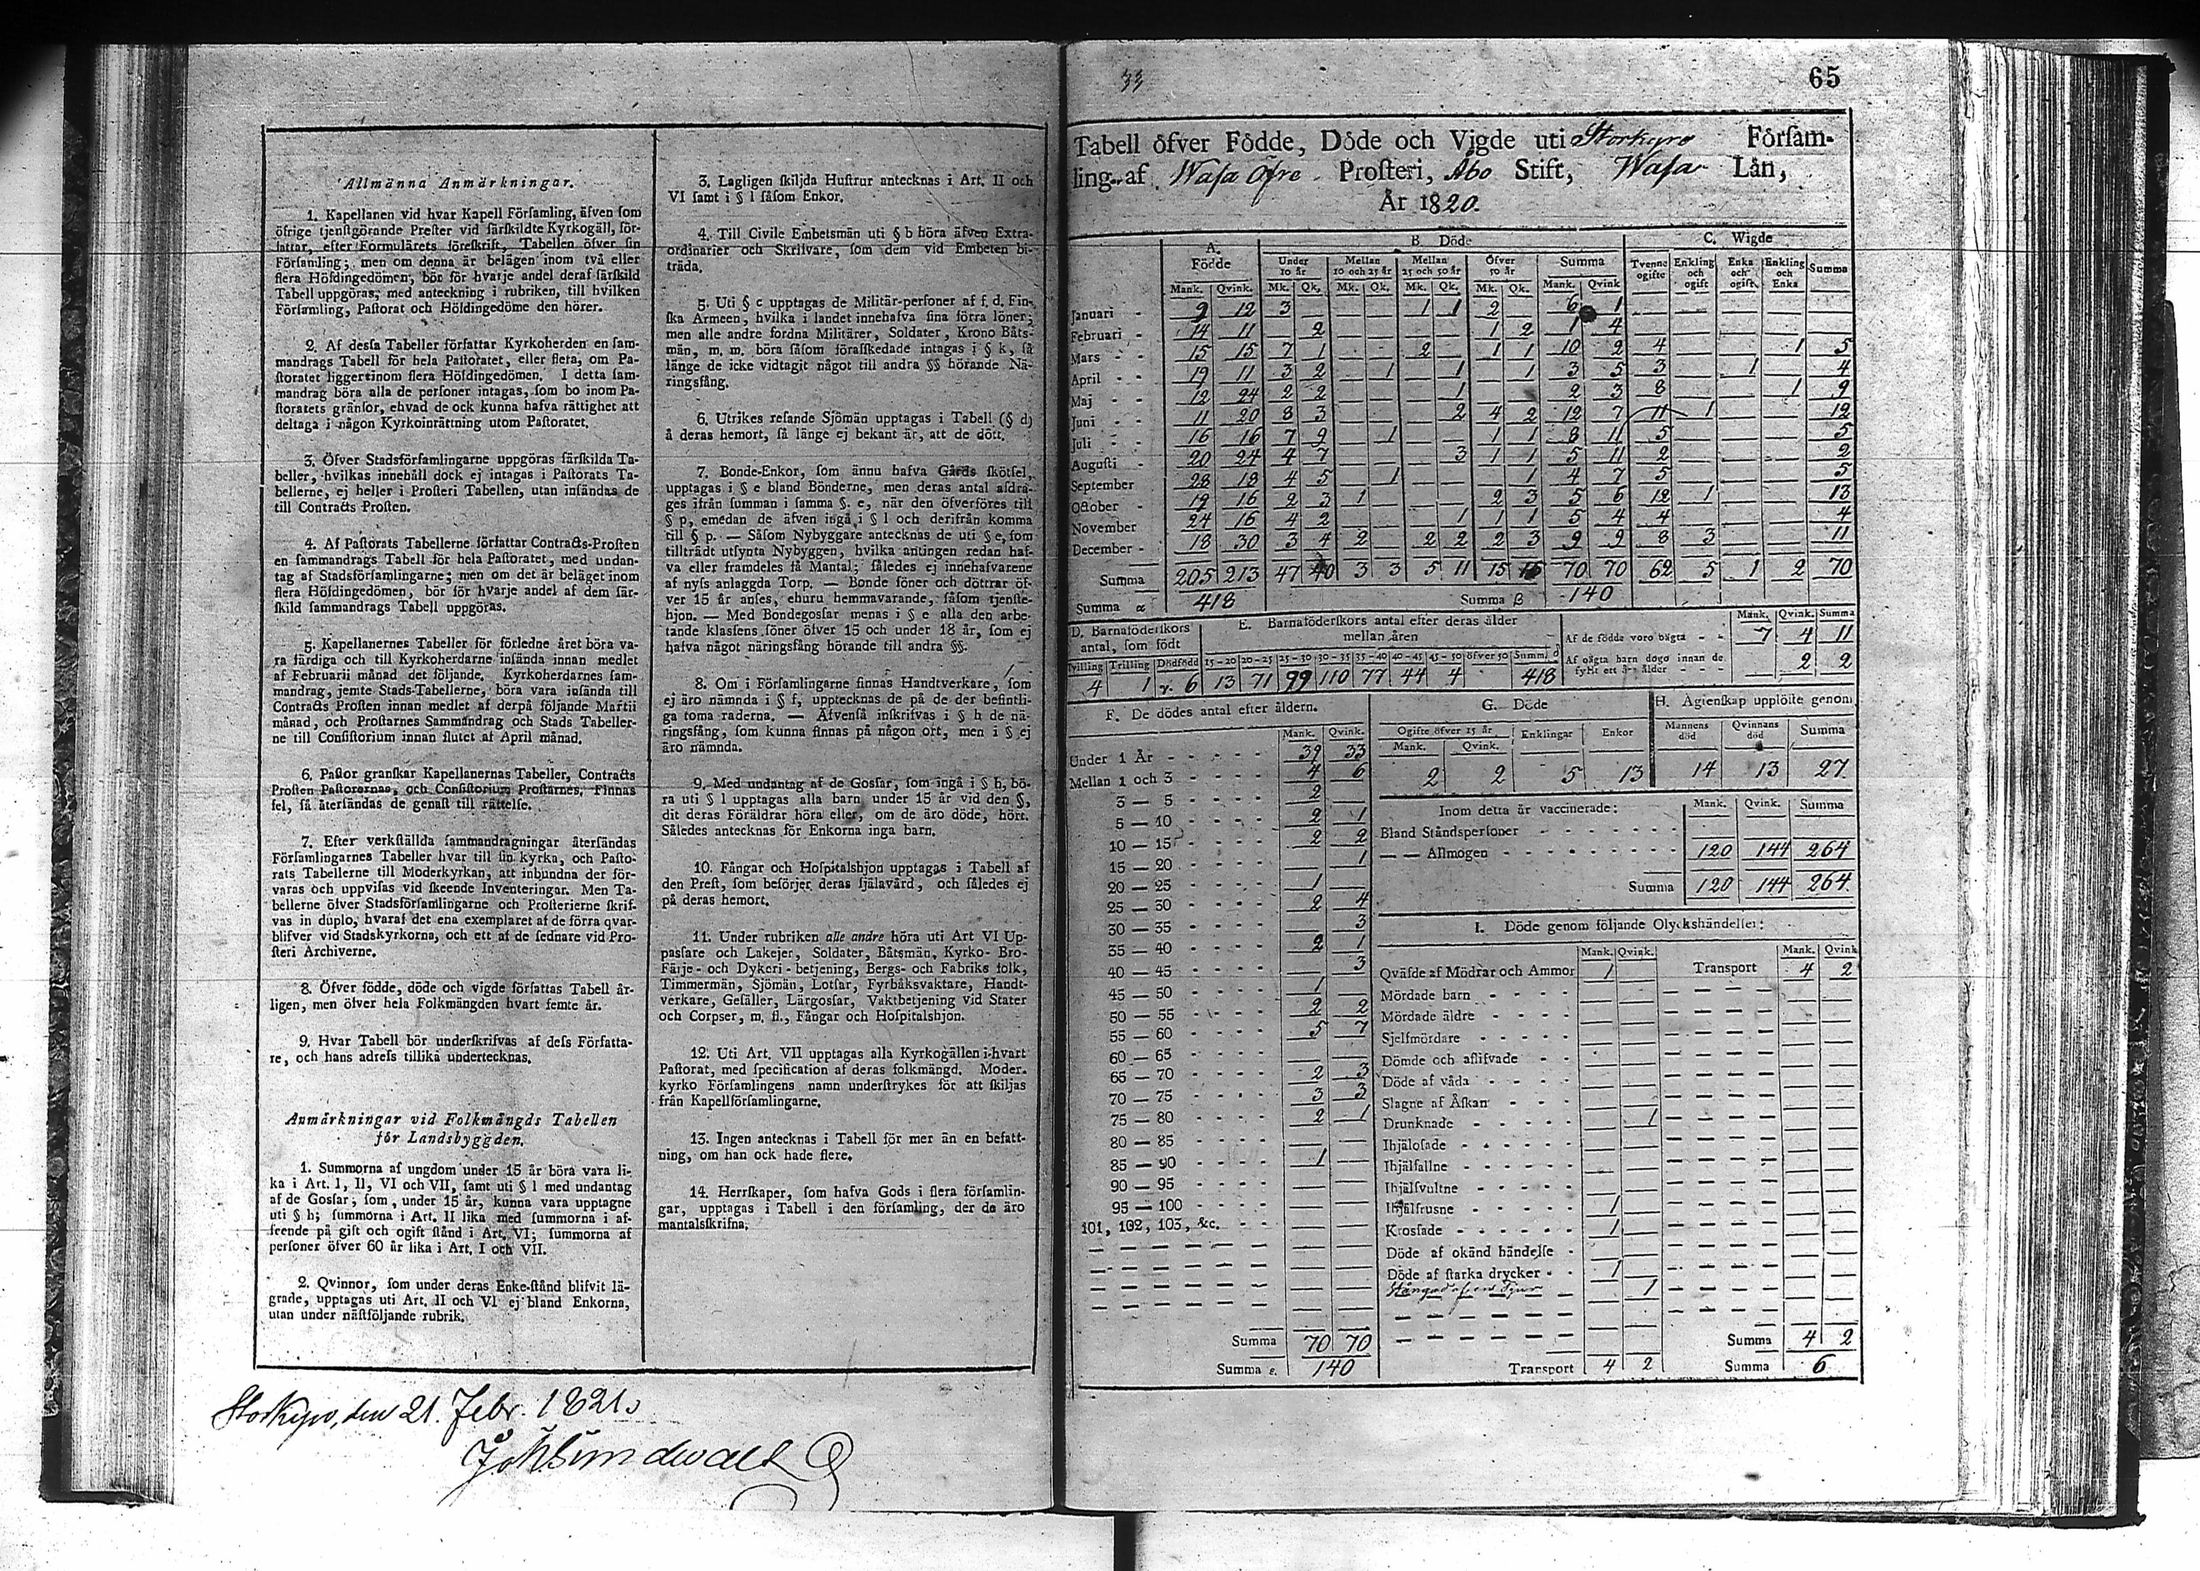 Allmänna Anmärkningar.
1. Kapellanen vid hvar Kapell Förſamling, äfven ſom
öfrige tjenſtgörande Preſter vid ſärſkildte Kyrkogäll, för-
fattar, efter Formulärets föreſkrift, Tabellen öfver ſin
Förſamling; men om denna är belägen inom två eller
flera Höfdingedömen, bör för hvarje andel deraf ſärſkild
Tabell uppgöras, med anteckning i rubriken, till hvilken
Förſamling, Paſtorat och Höfdingedöme den hörer.
2. Af desſa Tabeller författar Kyrkoherden en ſam-
mandrags Tabell för hela Paſtoratet, eller flera, om Pa-
ſtoratet ligger inom flera Höfdingedömen. I detta ſam-
mandrag böra alla de perſoner intagas, ſom bo inom Pa-
ſtoratets gränſor, ehvad de ock kunna hafva rättighet att
deltaga i någon Kyrkoinrättning utom Paſtoratet.
3. Öfver Stadsförſamlingarne uppgöras ſärſkilda Ta-
beller, hvilkas innehåll dock ej intagas i Paſtorats Ta-
bellerne, ej heller i Proſteri Tabellen, utan inſändas de
till Contracts Proſten.
4. Af Paſtorats Tabellerne författar Contracts-Proſten
en ſammandrags Tabell för hela Paſtoratet, med undan-
tag af Stadsförſamlingarne; men om det är beläget inom
flera Höfdingedömen, bör för hvarje andel af dem ſär-
ſkild ſammandrags Tabell uppgöras.
5. Kapellanernes Tabeller för förledne året böra va-
ra färdiga och till Kyrkoherdarne inſända innan medlet
af Februarii månad det följande. Kyrkoherdarnes ſam-
mandrag, jemte Stads-Tabellerne, böra vara inſända till
Contracts Proſten innan medlet af derpå följande Martii
månad, och Proſtarnes Sammandrag och Stads Tabeller-
ne till Conſiſtorium innan ſlutet af April månad.
6. Paſtor granſkar Kapellanernas Tabeller, Contracts
Proſten Paſtorernas, och Conſiſtorium Proſtarnes. Finnas
fel, ſå återſändas de genaſt till rättelſe.
7. Efter verkſtällda ſammandragningar återſändas
Förſamlingarnes Tabeller hvar till ſin kyrka, och Paſto-
rats Tabellerne till Moderkyrkan, att inbundna der för-
varas och uppviſas vid ſkeende Inventeringar. Men Ta-
bellerne öfver Stadsförſamlingarne och Proſterierne ſkrif-
vas in duplo, hvaraf det ena exemplaret af de förra qvar-
blifver vid Stadskyrkorna, och ett af de ſednare vid Pro-
ſteri Archiverne.
8. Öfver födde, döde och vigde författas Tabell år-
ligen, men öfver hela Folkmängden hvart femte år.
9. Hvar Tabell bör underſkrifvas af deſs Författa-
re, och hans adreſs tillika undertecknas.
Anmärkningar vid Folkmängds Tabellen
för Landsbyggden.
1. Summorna af ungdom under 15 år böra vara li-
ka i Art. I, II, VI och VII, ſamt uti § l med undantag
af de Gosſar, ſom, under 15 år, kunna vara upptagne
uti § h; ſummorna i Art. II lika med ſummorna i af-
ſeende på gift och ogift ſtånd i Art. VI; ſummorna af
perſoner öfver 60 år lika i Art. I och VII.
2. Qvinnor, ſom under deras Enke-ſtånd blifvit lä-
grade, upptagas uti Art. II och VI ej bland Enkorna,
utan under näſtföljande rubrik.
3. Lagligen ſkiljda Huſtrur antecknas i Art. II och
VI ſamt i § l ſåſom Enkor.
4. Till Civile Embetsmän uti § b höra äfven Extra-
ordinarier och Skrifvare, ſom dem vid Embeten bi-
träda.
5. Uti § c upptagas de Militär-perſoner af f. d. Fin-
ſka Armeen, hvilka i landet innehafva ſina förra löner;
men alle andre fordna Militärer, Soldater, Krono Båts-
män, m. m. böra ſåſom förafſkedade intagas i § k, ſå
länge de icke vidtagit något till andra §§ hörande Nä-
ringsfång.
6. Utrikes reſande Sjömän upptagas i Tabell (§ d)
å deras hemort, ſå länge ej bekant är, att de dött.
7. Bonde-Enkor, ſom ännu hafva Gårds ſkötſel,
upptagas i § e bland Bönderne, men deras antal afdra-
ges ifrån ſumman i ſamma §. e, när den öfverföres till
§ p, emedan de äfven ingå i § l och derifrån komma
till § p. — Såſom Nybyggare antecknas de uti § e, ſom
tillträdt utſynta Nybyggen, hvilka antingen redan haf-
va eller framdeles få Mantal; ſåledes ej innehafvarene
af nyſs anlaggda Torp. — Bonde ſöner och döttrar öf-
ver 15 år anſes, ehuru hemmavarande, ſåſom tjenſte-
hjon. — Med Bondegosſar menas i § e alla den arbe-
tande klasſens ſöner öfver 15 och under 18 år, ſom ej
hafva något näringsfång hörande till andra §§.
8. Om i Förſamlingarne finnas Handtverkare, ſom
ej äro nämnda i § f, upptecknas de på de der befintli-
ga toma raderna. — Äfvenſå inſkrifvas i § h de nä-
ringsfång, ſom kunna finnas på någon ort, men i § ej
äro nämnda.
9. Med undantag af de Gosſar, ſom ingå i § h, bö-
ra uti § l upptagas alla barn under 15 år vid den §,
dit deras Föräldrar höra eller, om de äro döde, hört.
Således antecknas för Enkorna inga barn.
10. Fångar och Hoſpitalshjon upptagas i Tabell af
den Preſt, ſom beſörjer deras ſjälavård, och ſåledes ej
på deras hemort.
11. Under rubriken alle andre höra uti Art VI Up-
pasſare och Lakejer, Soldater, Båtsmän, Kyrko- Bro-
Färje- och Dykeri-betjening, Bergs- och Fabriks folk,
Timmermän, Sjömän, Lotſar, Fyrbåksvaktare, Handt-
verkare, Geſäller, Lärgosſar, Vaktbetjening vid Stater
och Corpſer, m. fl., Fångar och Hoſpitalshjon.
12. Uti Art. VII upptagas alla Kyrkogällen i hvart
Paſtorat, med ſpecification af deras folkmängd. Moder-
kyrko Förſamlingens namn underſtrykes för att ſkiljas
från Kapellförſamlingarne.
13. Ingen antecknas i Tabell för mer än en befatt-
ning, om han ock hade flere.
14. Herrſkaper, ſom hafva Gods i flera förſamlin-
gar, upptagas i Tabell i den förſamling, der de äro
mantalsſkrifna.
Storkyro, den 21. Febr. 1821.
33
65
Tabell öfver Födde, Döde och Vigde uti Storkyro Förſam-
ling af Waſa Öfre Proſteri, Åbo Stift, Waſa Län,
År 1820.
A. Födde B. Döde C. Wigde
Under 10 år Mellan 10 och 25 år Mellan 25 och 50 år Öfver 50 år Summa Tvenne ogifte Enkling och ogift Enka och ogift Enkling och Enka Summa
Mank. Qvink. Mk. Qk. Mk. Qk. Mk. Qk. Mk. Qk. Mank. Qvink
Januari 9 12 3 1 1 2 6 1
Februari 14 11 2 1 2 1 4
Mars 15 15 7 1 2 1 1 10 2 4 1 5
April 19 11 3 2 1 1 1 3 5 3 1 4
Maj 12 24 2 2 1 2 3 8 1 9
Juni 11 20 8 3 2 4 2 12 7 11 1 12
Juli 16 16 7 9 1 1 1 8 11 5 5
Auguſti 20 24 4 7 3 1 1 5 11 2 2
September 28 18 4 5 1 1 4 7 5 5
October 19 16 2 3 1 2 3 5 6 12 1 13
November 24 16 4 2 1 1 1 5 4 4 4
December 18 30 3 4 2 2 2 2 3 9 9 8 3 11
Summa 205 213 47 40 3 3 5 11 15 16 70 70 62 5 1 2 70
Summa α 418 Summa β 140
D. Barnaföderſkors antal, ſom födt
Tvilling Trilling Dödfödd
4 1 6
E. Barnaföderſkors antal efter deras ålder mellan åren
15-20 20-25 25-30 30-35 35-40 40-45 45-50 öfver 50 Summ. δ
13 71 99 110 77 44 4 418
Mank. Qvink. Summa
Af de födda voro oägta 7 4 11
Af oägta barn dogo innan de fyllt ett års ålder 2 2
F. De dödes antal efter åldern.
Mank. Qvink.
Under 1 År 39 33
Mellan 1 och 3 4 6
3 — 5 2
5 — 10 2 1
10 — 15 2 2
15 — 20 1
20 — 25 1
25 — 30 2 4
30 — 35 3
35 — 40 2 1
40 — 45 3
45 — 50 1
50 — 55 2 2
55 — 60 5 7
60 — 65
65 — 70 2 3
70 — 75 3 3
75 — 80 2 1
80 — 85
85 — 90 1
90 — 95
95 — 100
101, 102, 103, &c.
Summa 70 70
Summa ε. 140
G. Döde
Ogifte öfver 15 år Enklingar Enkor
Mank. Qvink.
2 2 5 13
H. Ägtenſkap upplöſte genom
Mannens död Qvinnans död Summa
14 13 27
Inom detta år vaccinerade: Mank. Qvink. Summa
Bland Ståndsperſoner
— — Allmogen 120 144 264
Summa 120 144 264
I. Döde genom följande Olyckshändelſer:
Mank. Qvink. Mank. Qvink
Qväfde af Mödrar och Ammor 1 Transport 4 2
Mördade barn
Mördade äldre
Sjelfmördare
Dömde och aflifvade
Döde af våda
Slagne af Åſkan
Drunknade 1
Ihjälofade
Ihjälfallne
Ihjälſvultne
Ihjälfrusne 1
Krosſade 1
Döde af okänd händelſe
Döde af ſtarka drycker 1
Stångad af en Tjur 1
Summa 4 2
Transport 4 2 Summa 6